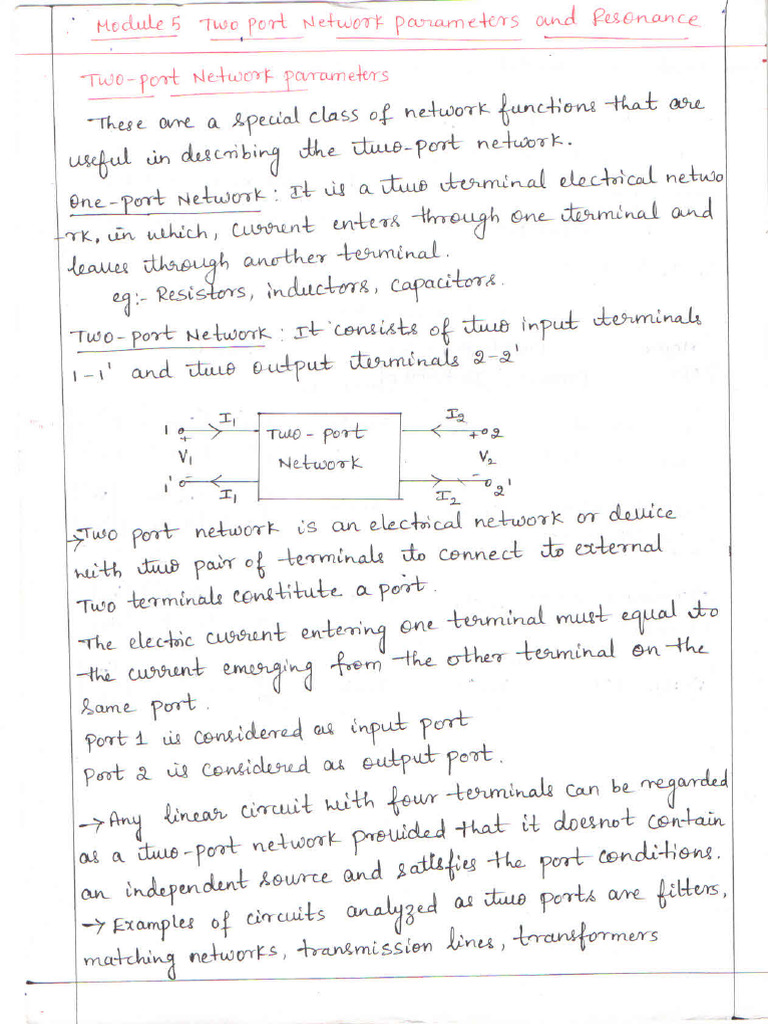 Module 5 Two port Network parameters and Resonance
Two-port Network parameters
These are a special class of network functions that are
useful in describing the two-port network.
One-port Network: It is a two terminal electrical netwo
rk, in which, current enters through one terminal and
leaves through another terminal.
eg:- Resistors, inductors, capacitors.
Two-port Network: It consists of two input terminals
1-1' and two output terminals 2-2'
I1 I2
1 + Two-port + 2
V1 Network V2
1' - - 2'
I1 I2
→ Two port network is an electrical network or device
with two pair of terminals to connect to external
Two terminals constitute a port.
The electric current entering one terminal must equal to
the current emerging from the other terminal on the
same port.
Port 1 is considered as input port
Port 2 is considered as output port.
→ Any linear circuit with four terminals can be regarded
as a two-port network provided that it doesnot contain
an independent source and satisfies the port conditions.
→ Examples of circuits analyzed as two ports are filters,
matching networks, transmission lines, transformers